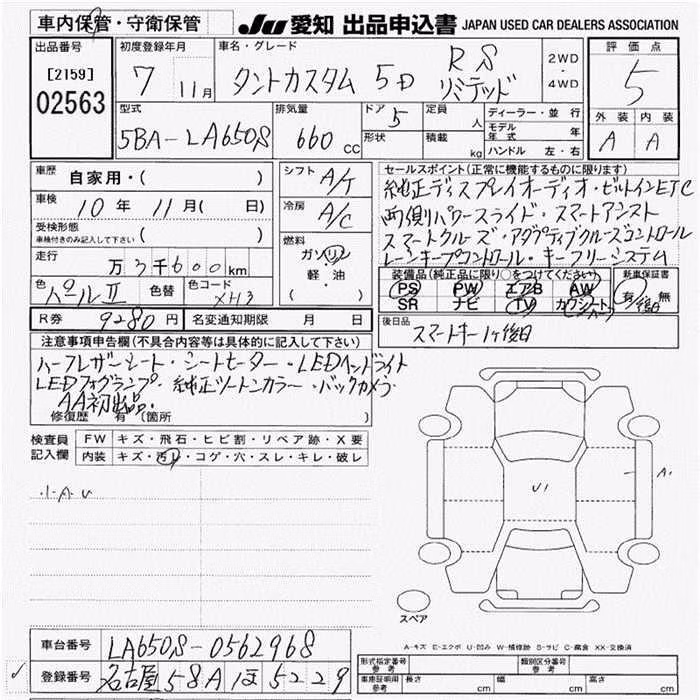 車内保管・守衛保管
JU 愛知 出品申込書 JAPAN USED CAR DEALERS ASSOCIATION
出品番号
[2159]
02563
初度登録年月
7 11月
車名・グレード
タントカスタム 5D RS リミテッド
2WD・4WD
評価点
5
外装 内装
A A
型式
5BA-LA650S
排気量
660 CC
ドア 5
形状
定員 人
積載 kg
ディーラー・並行
モデル年式 年
ハンドル 左・右
車歴
自家用・( )
車検
10年 11月( 日)
受検形態
車検付きのみ記入して下さい ( )
走行
万 3千600km
色 パールII 色替 色コード XH3
シフト A/T
冷房 A/C
燃料
ガソリン
軽油
( )
R券 9280円 名変通知期限 月 日
セールスポイント(正常に機能するものに限ります)
純正ディスプレイオーディオ・ビルトインETC
両側パワースライド・スマートアシスト
スマートクルーズ・アダプティブクルーズコントロール
レーンキープコントロール・キーフリーシステム
装備品(純正品に限り○をつけてください)
PS PW エアB AW
SR ナビ TV カワシート
新車保証書
有・無
後日
後日品
スマートキー1ヶ後日
注意事項申告欄(不具合内容等は具体的に記入して下さい)
ハーフレザーシート・シートヒーター・LEDヘッドライト
LEDフォグランプ・純正ツートンカラー・バックカメラ
AA初出品・
修復歴 有(箇所 )
検査員記入欄
FW キズ・飛石・ヒビ割・リペア跡・X要
内装 キズ・汚レ・コゲ・穴・スレ・キレ・破レ
・1A U
U1
A1
スペア
A-キズ E-エクボ U-凹み W-補修跡 S-サビ C-腐食 XX-交換済
車台番号 LA650S-0562968
登録番号 名古屋 58A ほ 5229
形式指定番号 参考
類別区分番号 参考
車庫証明用 参考 長さ cm 幅 cm 高さ cm